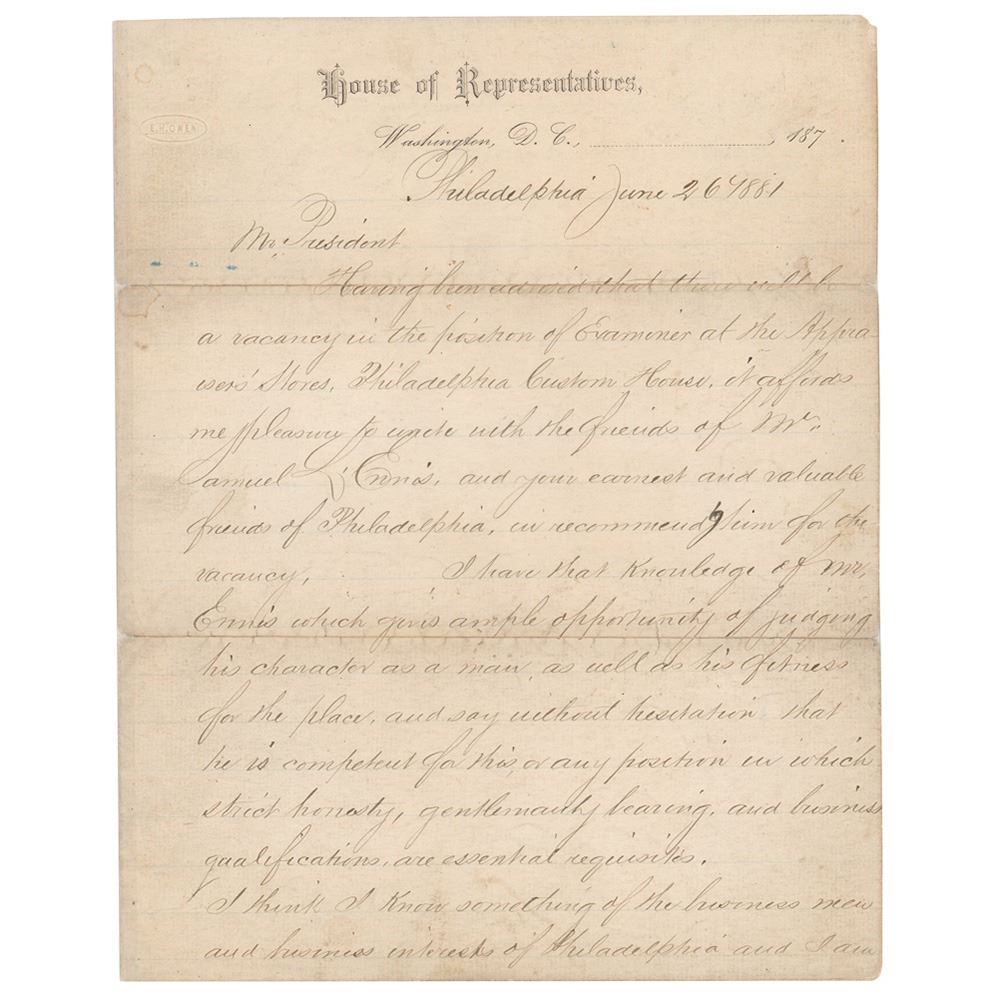 House of Representatives,
E.H. OWEN
Washington, D. C., 187 .
Philadelphia June 26 1881
Mr. President
Having been advised that there will be
a vacancy in the position of Examiner at the Appra
isers' Stores, Philadelphia Custom House, it affords
me pleasure to unite with the friends of Mr.
Samuel Ennis, and your earnest and valuable
friends of Philadelphia, in recommendg him for the
vacancy, I have that Knowledge of Mr.
Ennis which gives ample opportunity of judging
his character as a man, as well as his fitness
for the place, and say without hesitation that
he is competent for this, or any position in which
strict honesty, gentlemanly bearing, and business
qualifications, are essential requisites.
I think I know something of the business men
and business interests of Philadelphia and I am